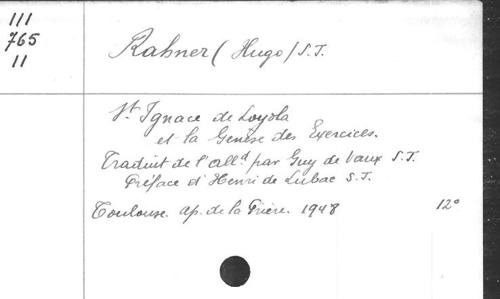 111
765
11
Rahner (Hugo) S.J.
St Ignace de Loyola
et la Genèse des Exercices.
Traduit de l'alld par Guy de Vaux S.J.
Préface d'Henri de Lubac S.J.
Toulouse. Ap. de la Prière. 1948 12°